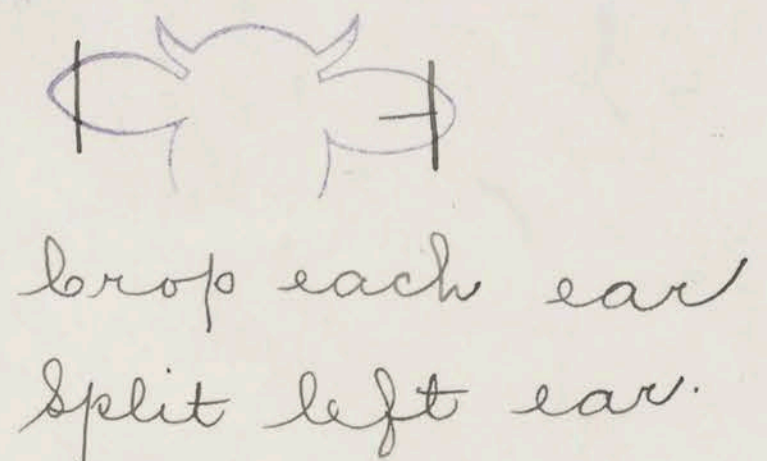 Crop each ear
Split left ear.